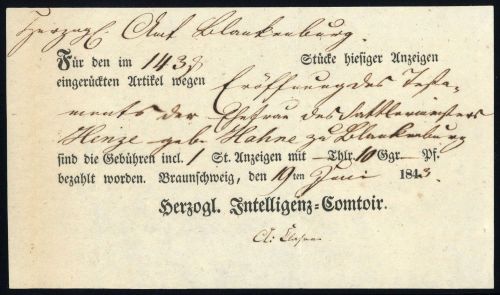 Herzogl. Amt Blankenburg.
Für den im 143s Stücke hiesiger Anzeigen
eingerückten Artikel wegen Eröffnung des Testa-
ments der Ehefrau des Sattlermeisters
Heinze gebr Hahne zu Blankenburg
sind die Gebühren incl. 1 St. Anzeigen mit — Thlr. 10 Ggr. — Pf.
bezahlt worden. Braunschweig, den 19ten Juni 1843.
Herzogl. Intelligenz-Comtoir.